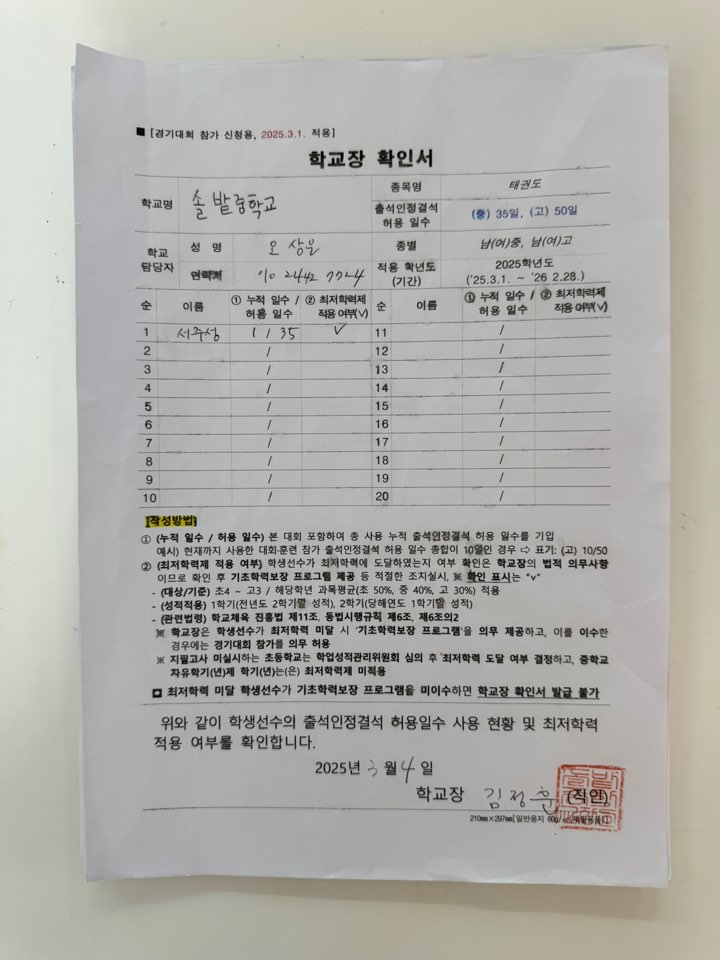 ■ [경기대회 참가 신청용, 2025.3.1. 적용]
학교장 확인서
학교명 솔밭중학교 종목명 태권도
출석인정결석 허용 일수 (중) 35일, (고) 50일
학교 담당자 성 명 오상윤 종별 남(여)중, 남(여)고
연락처 010 2442 7724 적용 학년도 (기간) 2025학년도 ('25.3.1. ~ '26 2.28.)
순 이름 ① 누적 일수 / 허용 일수 ② 최저학력제 적용 여부(√) 순 이름 ① 누적 일수 / 허용 일수 ② 최저학력제 적용 여부(√)
1 서주상 1 / 35 √ 11 /
2 / 12 /
3 / 13 /
4 / 14 /
5 / 15 /
6 / 16 /
7 / 17 /
8 / 18 /
9 / 19 /
10 / 20 /
[작성방법]
① (누적 일수 / 허용 일수) 본 대회 포함하여 총 사용 누적 출석인정결석 허용 일수를 기입
예시) 현재까지 사용한 대회·훈련 참가 출석인정결석 허용 일수 총합이 10일인 경우 ⇨ 표기: (고) 10/50
② (최저학력제 적용 여부) 학생선수가 최저학력에 도달하였는지 여부 확인은 학교장의 법적 의무사항
이므로 확인 후 기초학력보장 프로그램 제공 등 적절한 조치실시, ※ 확인 표시는 "v"
- (대상/기준) 초4 ~ 고3 / 해당학년 과목평균(초 50%, 중 40%, 고 30%) 적용
- (성적적용) 1학기(전년도 2학기말 성적), 2학기(당해연도 1학기말 성적)
- (관련법령) 학교체육 진흥법 제11조, 동법시행규칙 제6조, 제6조의2
※ 학교장은 학생선수가 최저학력 미달 시 '기초학력보장 프로그램'을 의무 제공하고, 이를 이수한
경우에는 경기대회 참가를 의무 허용
※ 지필고사 미실시하는 초등학교는 학업성적관리위원회 심의 후 '최저학력 도달 여부 결정하고, 중학교
자유학기(년)제 학기(년)는(은) 최저학력제 미적용
➪ 최저학력 미달 학생선수가 기초학력보장 프로그램을 미이수하면 학교장 확인서 발급 불가
위와 같이 학생선수의 출석인정결석 허용일수 사용 현황 및 최저학력
적용 여부를 확인합니다.
2025년 3월 4일
학교장 김정훈 (직인)
210㎜×297㎜[일반용지 60g/